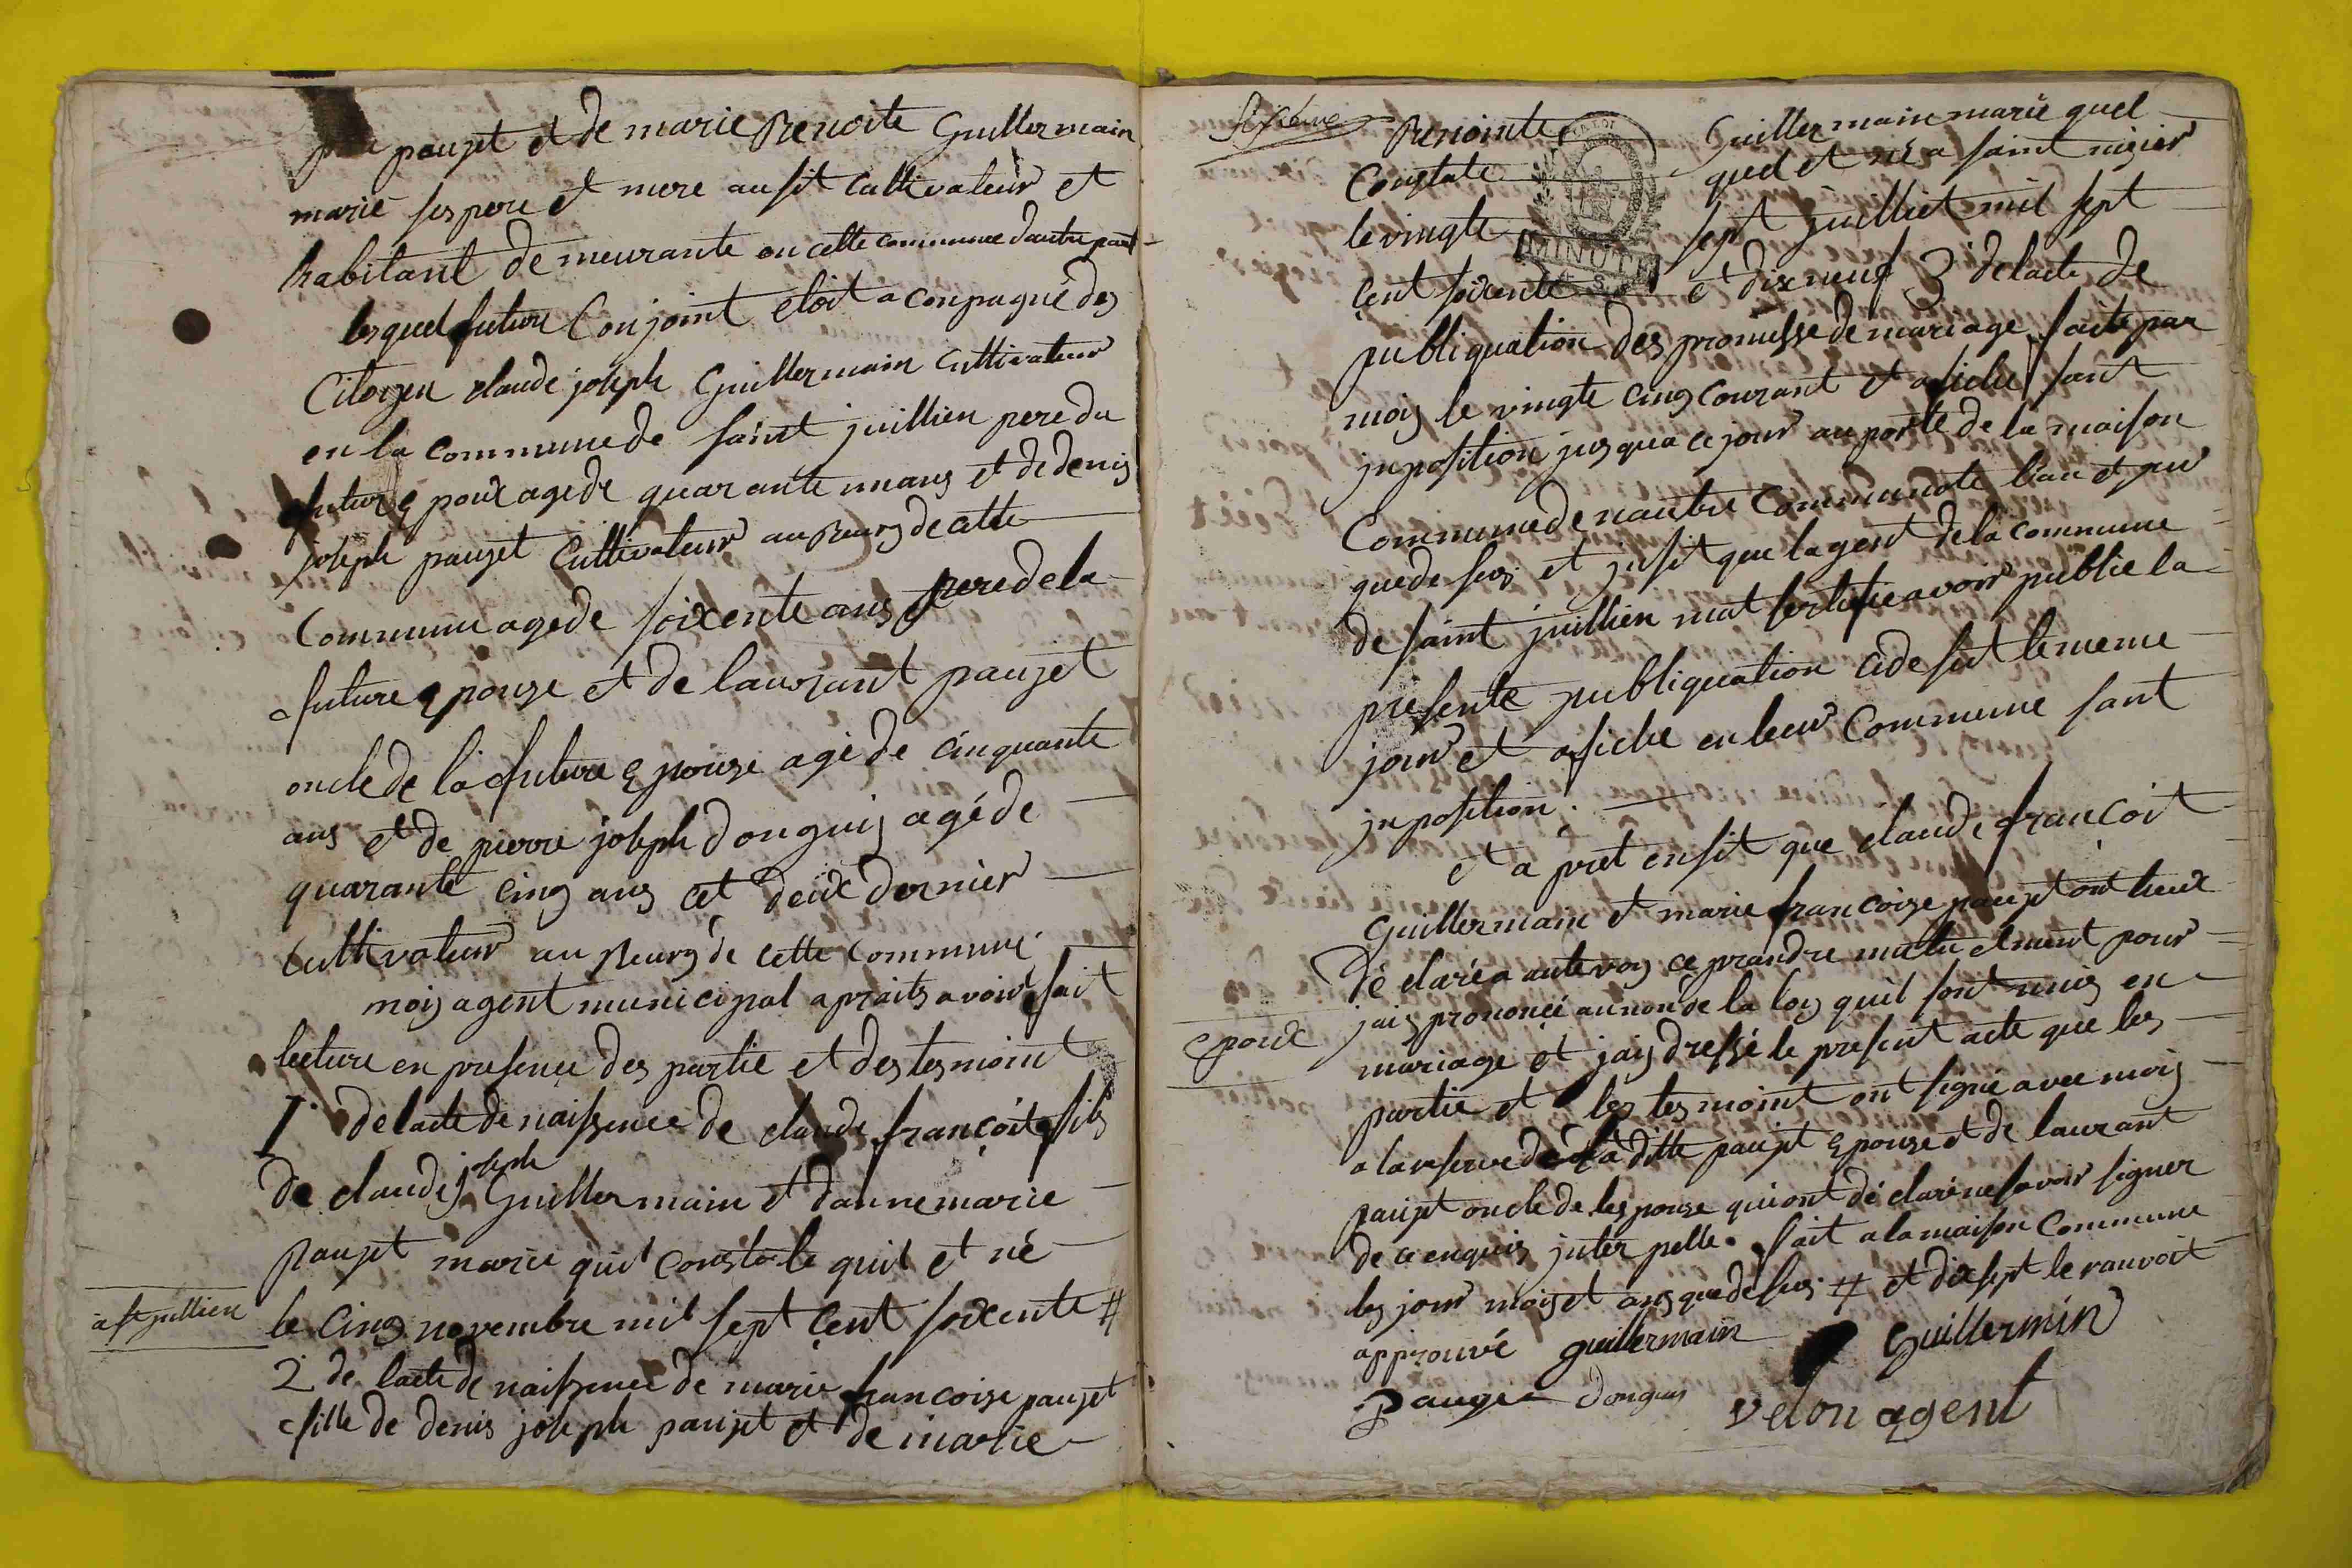 paujet et de marie Benoite Guillermain
marié ses pere et mere ausit Cultivateur et
habitant demeurante en cette commune dautre part
lesquel future Conjoint etoit aconpagné des
Citoyen claude joseph Guillermain Cultivateur
en la Commune de saint juillien pere du
futur epoux agé de quarante nnans et de denis
joseph paujet Cultivateur au Bourg de cette
Commune agé de soixente ans pere de la
future epouze et de laurant paujet
oncle de la future epouze agé de cinquante
ans et de pierre joseph donguis agé de
quarante cinq ans cet deux dernier
Cultivateur au Bourg de cette Commune
mois agent municipal apraits avoir fait
lecture en presence des partie et des tesmoint
1° de lacte de naissence de claude françoit fils
de claude joseph Guillermain et danne marie
paujet marie qui Constate quil et né
à st jullien
le cinq novembre mil sept cent soixente #
2 de lacte de naissence de marie francoise paujet
fille de denis joseph paujet et de marie
sixieme
Benointe Guillermain marie quel
Constate quel et né a saint nizier
le vingte sept juilliet mil sept
MINUTE
cent soixente et dix neuf 3 de lacte de
publiquation des promesse de mariage faite par
mois le vingte cinq courant et afiche sant
jnposition jusqua ce jour au porte de la maison
Commune de nautre Communote lan et jour
que desus et jnsit que lagent de la commune
de saint juillien mat sertifie avoir publie la
presente publiquation cidesut le meme
jour et afiche en leur Commune sant
jnposition.
et apret ensit que claude francoit
Guillermain et marie francoize paujet ont heux
déclaré a aute voy ce prandre mutuelment pour
epoux
jais prononcé au non de la loy quil sont unis en
mariage et jais dressé le present acte que les
partie et les tesmoint ont signé avec mois
a la reserve de la ditte paujet epouze et de laurant
paujet oncle de lespouze qui ont déclaré ne savoir signer
de ce enquis jnterpelle. fait a la maison Commune
les jour mois et ans que desus # et dix sept le ranvoit
approuvé guillermain Guillermin
Pauge donguis velon agent